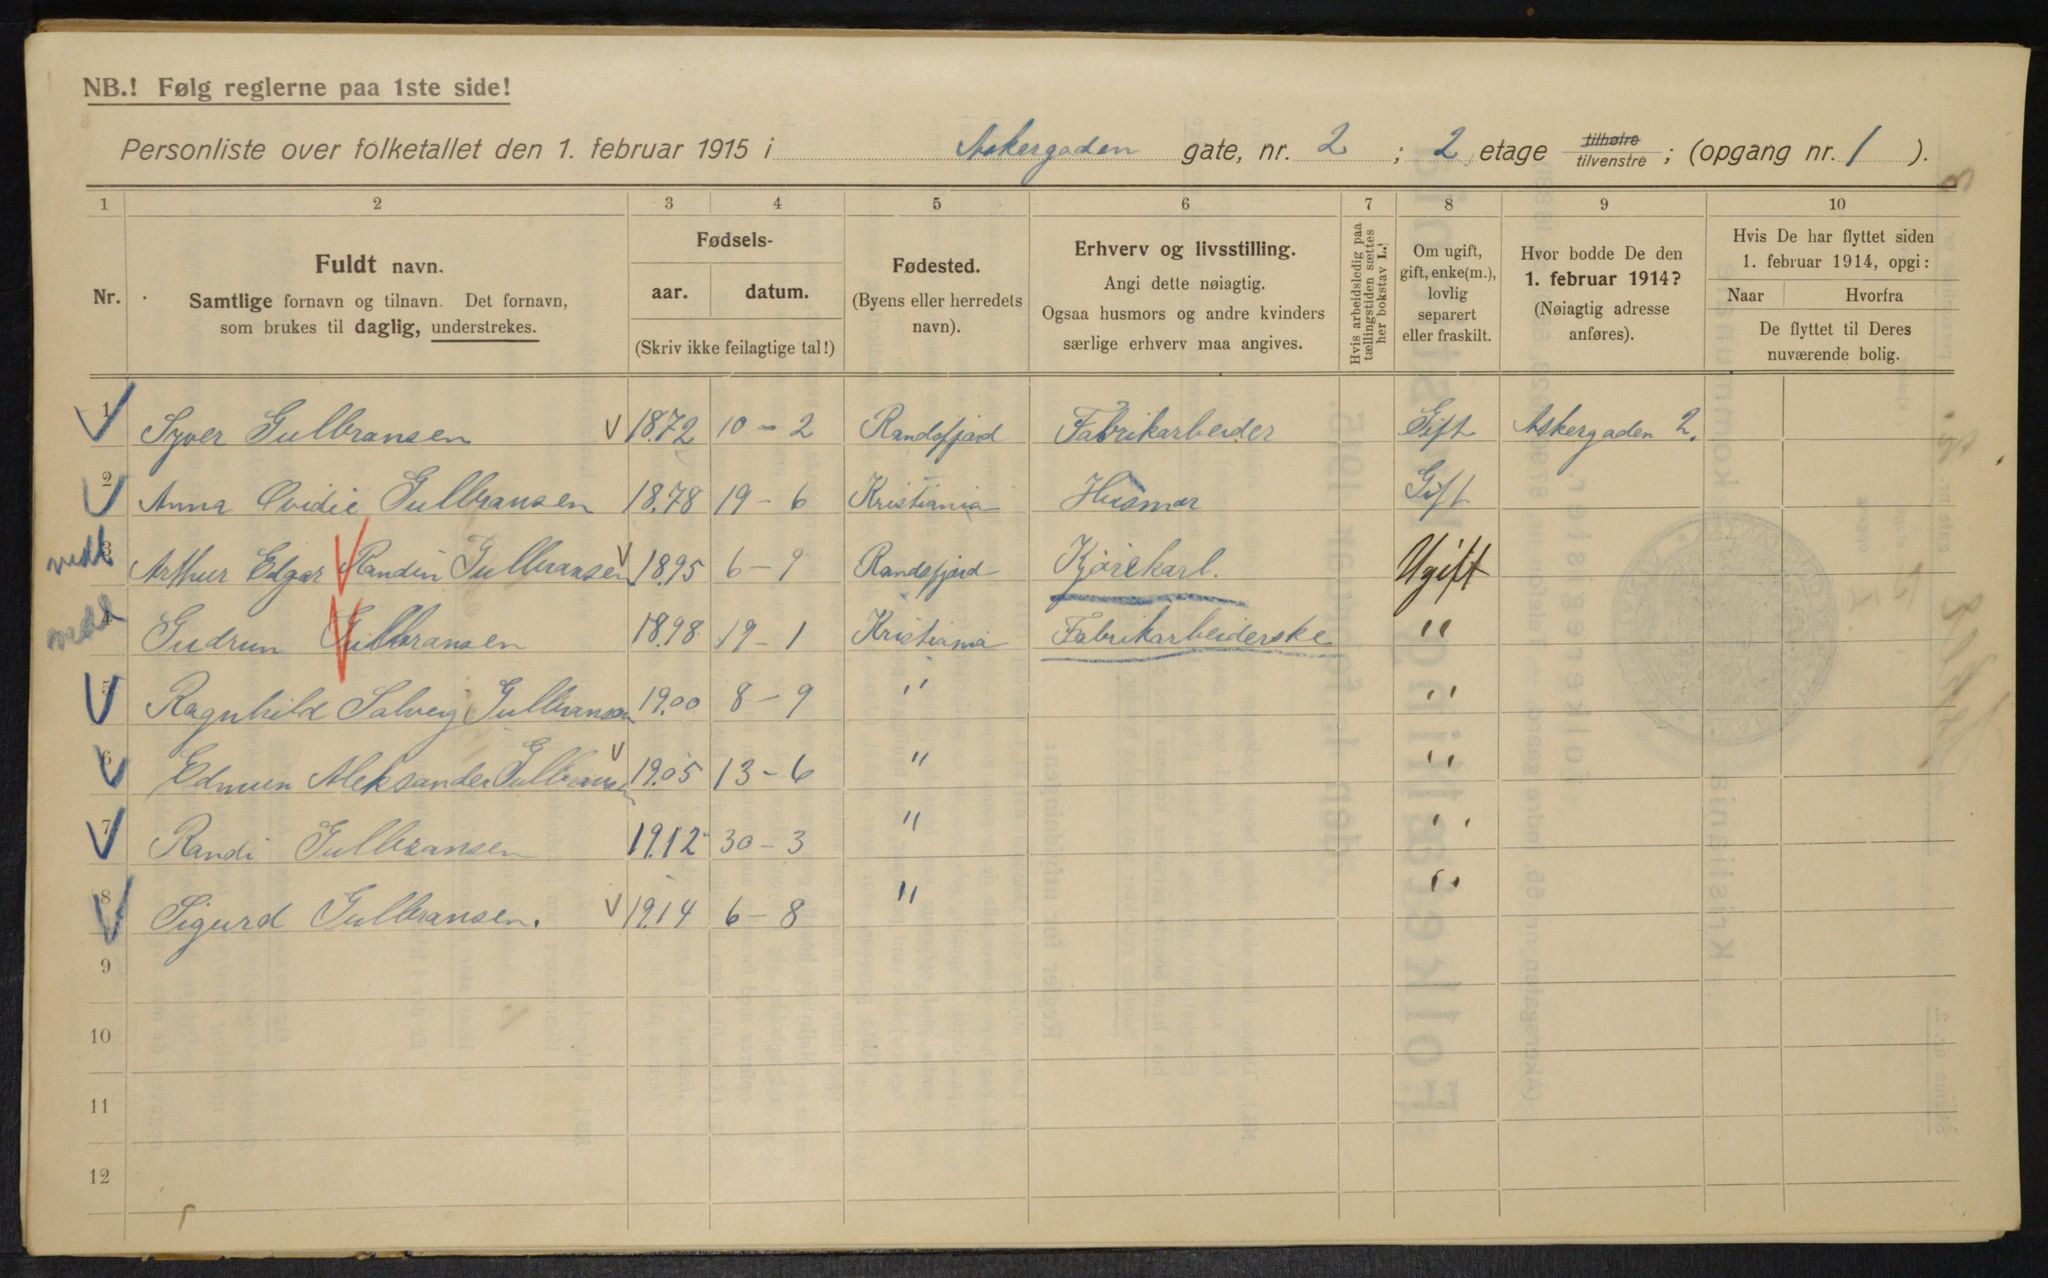 NB.! Følg reglerne paa 1ste side!
Personliste over folketallet den 1. februar 1915 i Askergaden gate, nr. 2 ; 2 etage tilhøire tilvenstre ; (opgang nr. 1 ).
1 2 3 4 5 6 7 8 9 10
Nr.
Fuldt navn.
Samtlige fornavn og tilnavn. Det fornavn,
som brukes til daglig, understrekes.
Fødsels-
aar. datum.
(Skriv ikke feilagtige tal!)
Fødested.
(Byens eller herredets
navn).
Erhverv og livsstilling.
Angi dette nøiagtig.
Ogsaa husmors og andre kvinders
særlige erhverv maa angives.
Hvis arbeidsledig paa
tællingstiden sættes
her bokstav L.!
Om ugift,
gift, enke(m.),
lovlig
separert
eller fraskilt.
Hvor bodde De den
1. februar 1914?
(Nøiagtig adresse
anføres).
Hvis De har flyttet siden
1. februar 1914, opgi:
Naar Hvorfra
De flyttet til Deres
nuværende bolig.
1 Syver Gulbransen 1872 10-2 Randsfjord Fabrikarbeider Gift Askergaden 2.
2 Anna Ovidie Gulbransen 1878 19-6 Kristiania Husmor Gift
3 Arthur Edgar Randin Gulbransen 1895 6-9 Randsfjord Kjørekarl. Ugift
4 Gudrun Gulbransen 1898 19-1 Kristiania Fabrikarbeiderske "
5 Ragnhild Solveig Gulbransen 1900 8-9 " "
6 Edmun Aleksander Gulbransen 1905 13-6 " "
7 Randi Gulbransen 1912 30-3 " "
8 Sigurd Gulbransen. 1914 6-8 " "
9
10
11
12